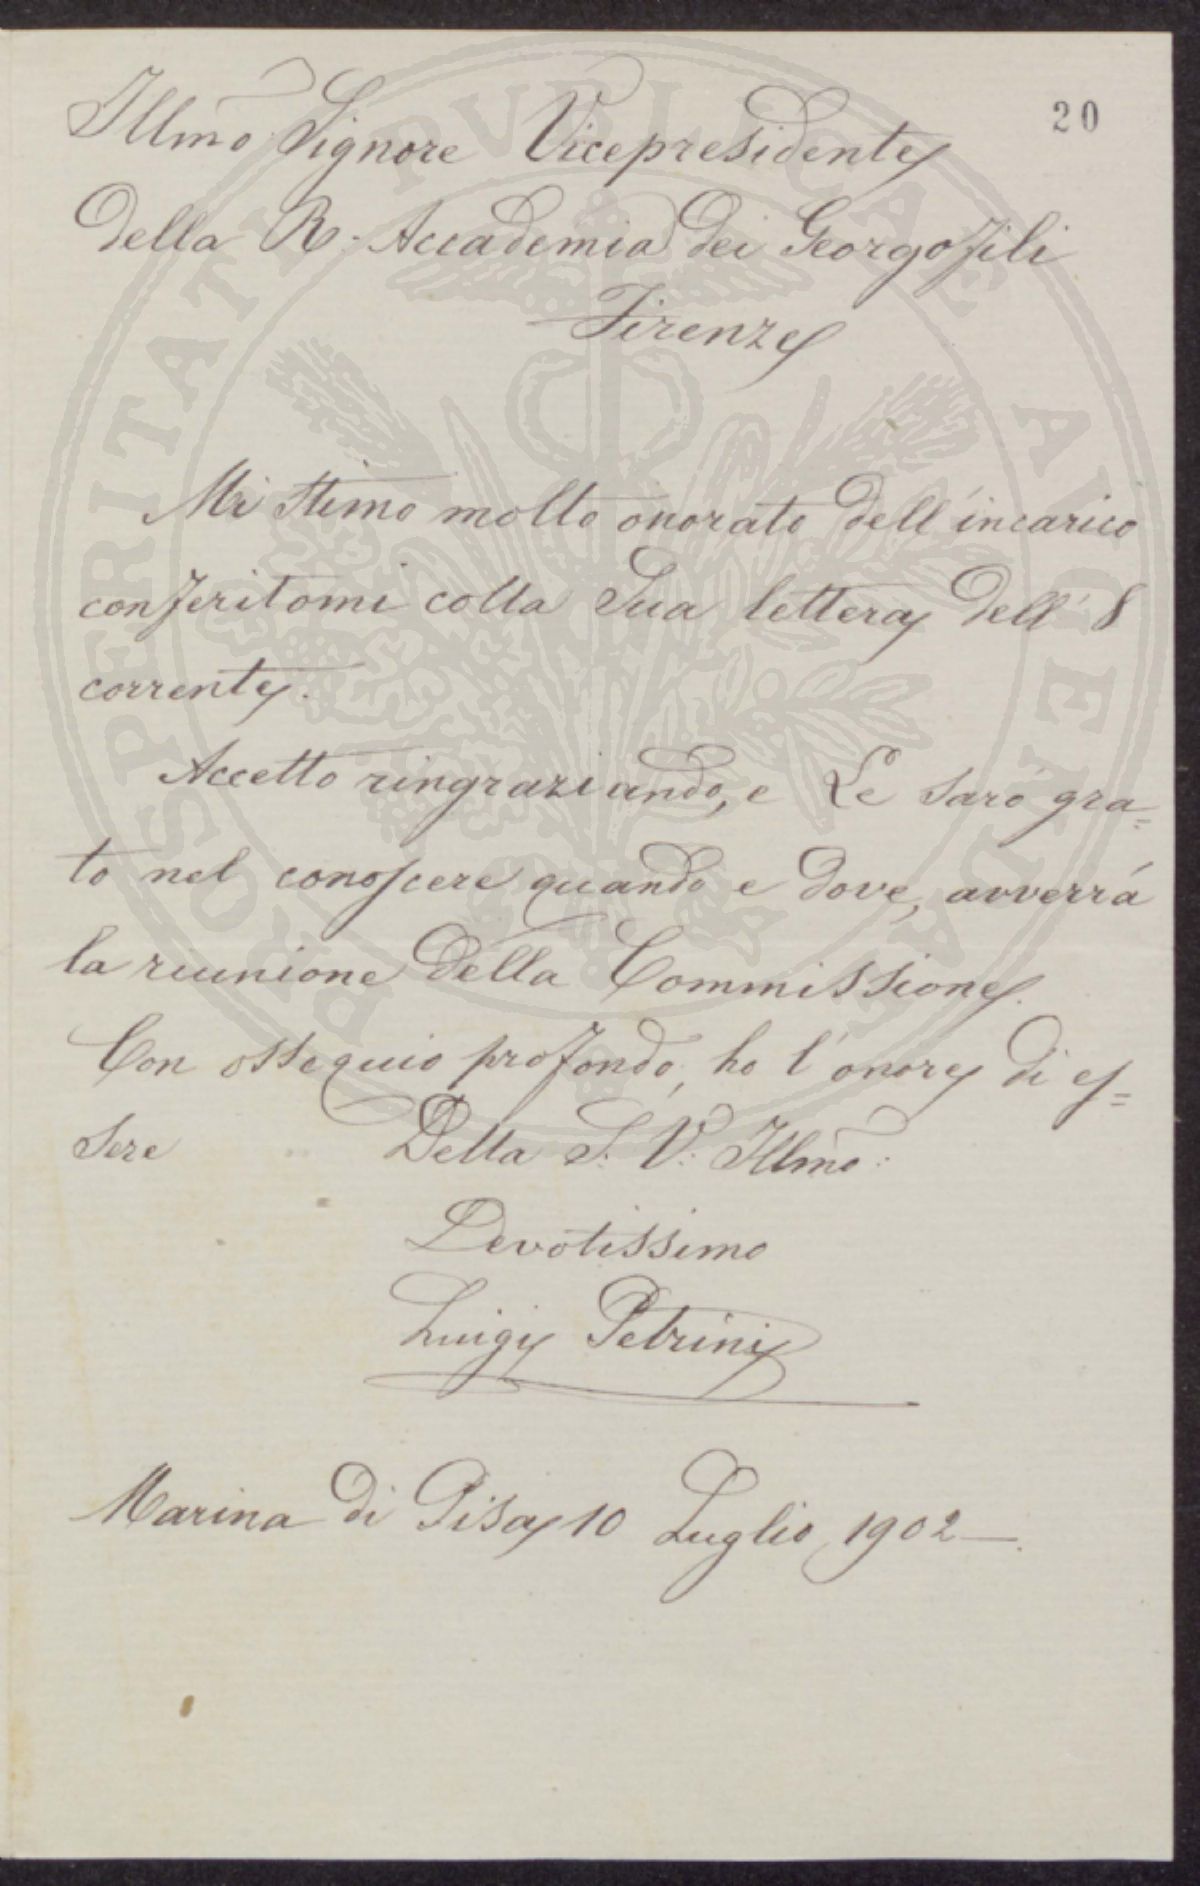 20
Illmo Signore Vicepresidente
della R. Accademia dei Georgofili
Firenze
Mi stimo molto onorato dell'incarico
conferitomi colla Sua lettera dell' 8
corrente.
Accetto ringraziando, e Le sarò gra=
to nel conoscere quando e dove, avverrà
la riunione della Commissione.
Con ossequio profondo, ho l'onore di es=
sere Della S. V. Illmo:
Devotissimo
Luigi Petrini
Marina di Pisa, 10 Luglio, 1902 —.
PROSPERITATI PVBLICAE AVGENDAE